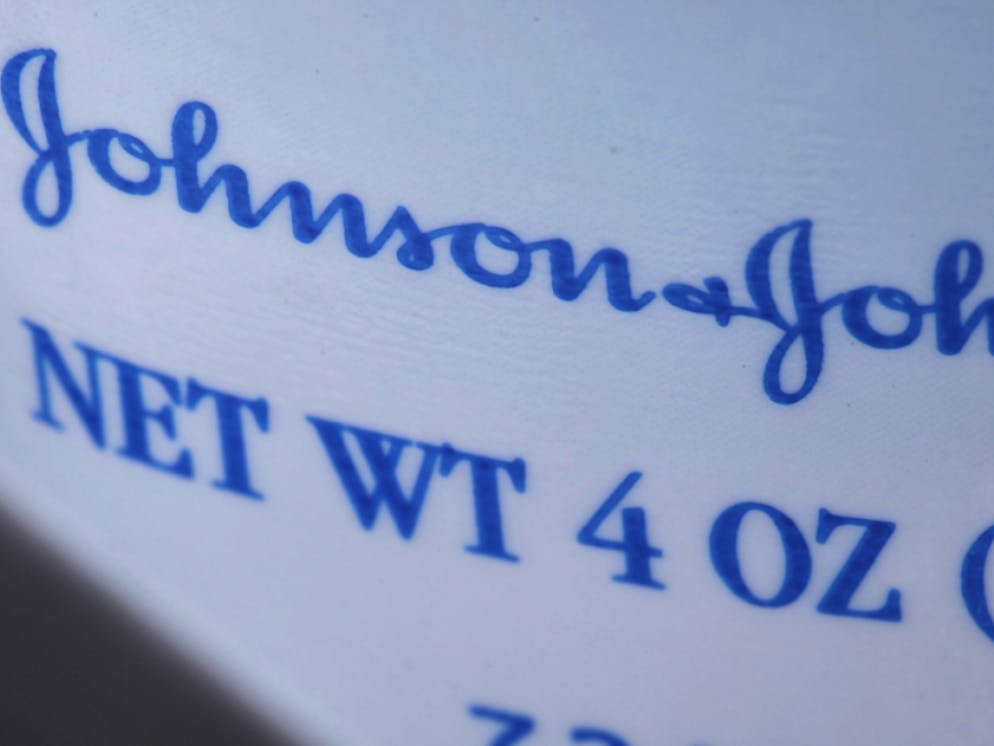 Johnson & Joh
NET WT 4 OZ (